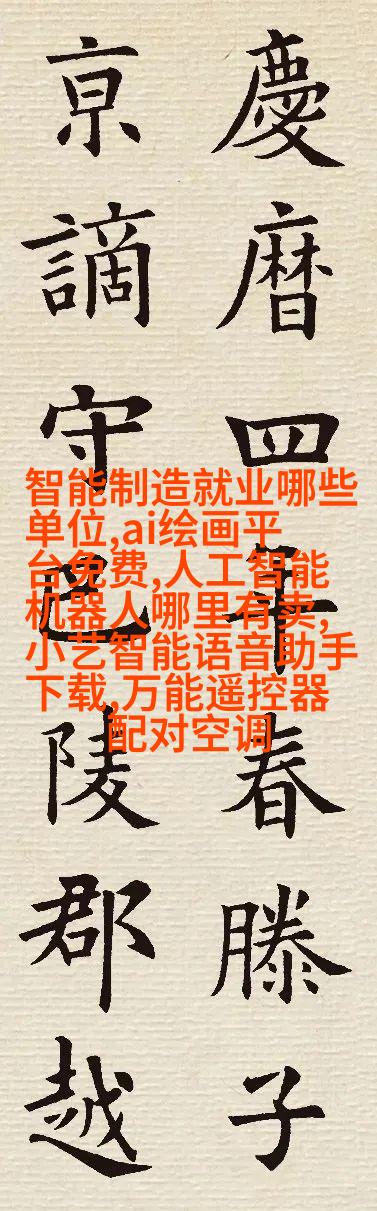 慶曆四年春滕子
亰謫守巴陵郡越
智能制造就业哪些
单位,ai绘画平
台免费,人工智能
机器人哪里有卖,
小艺智能语音助手
下载,万能遥控器
配对空调